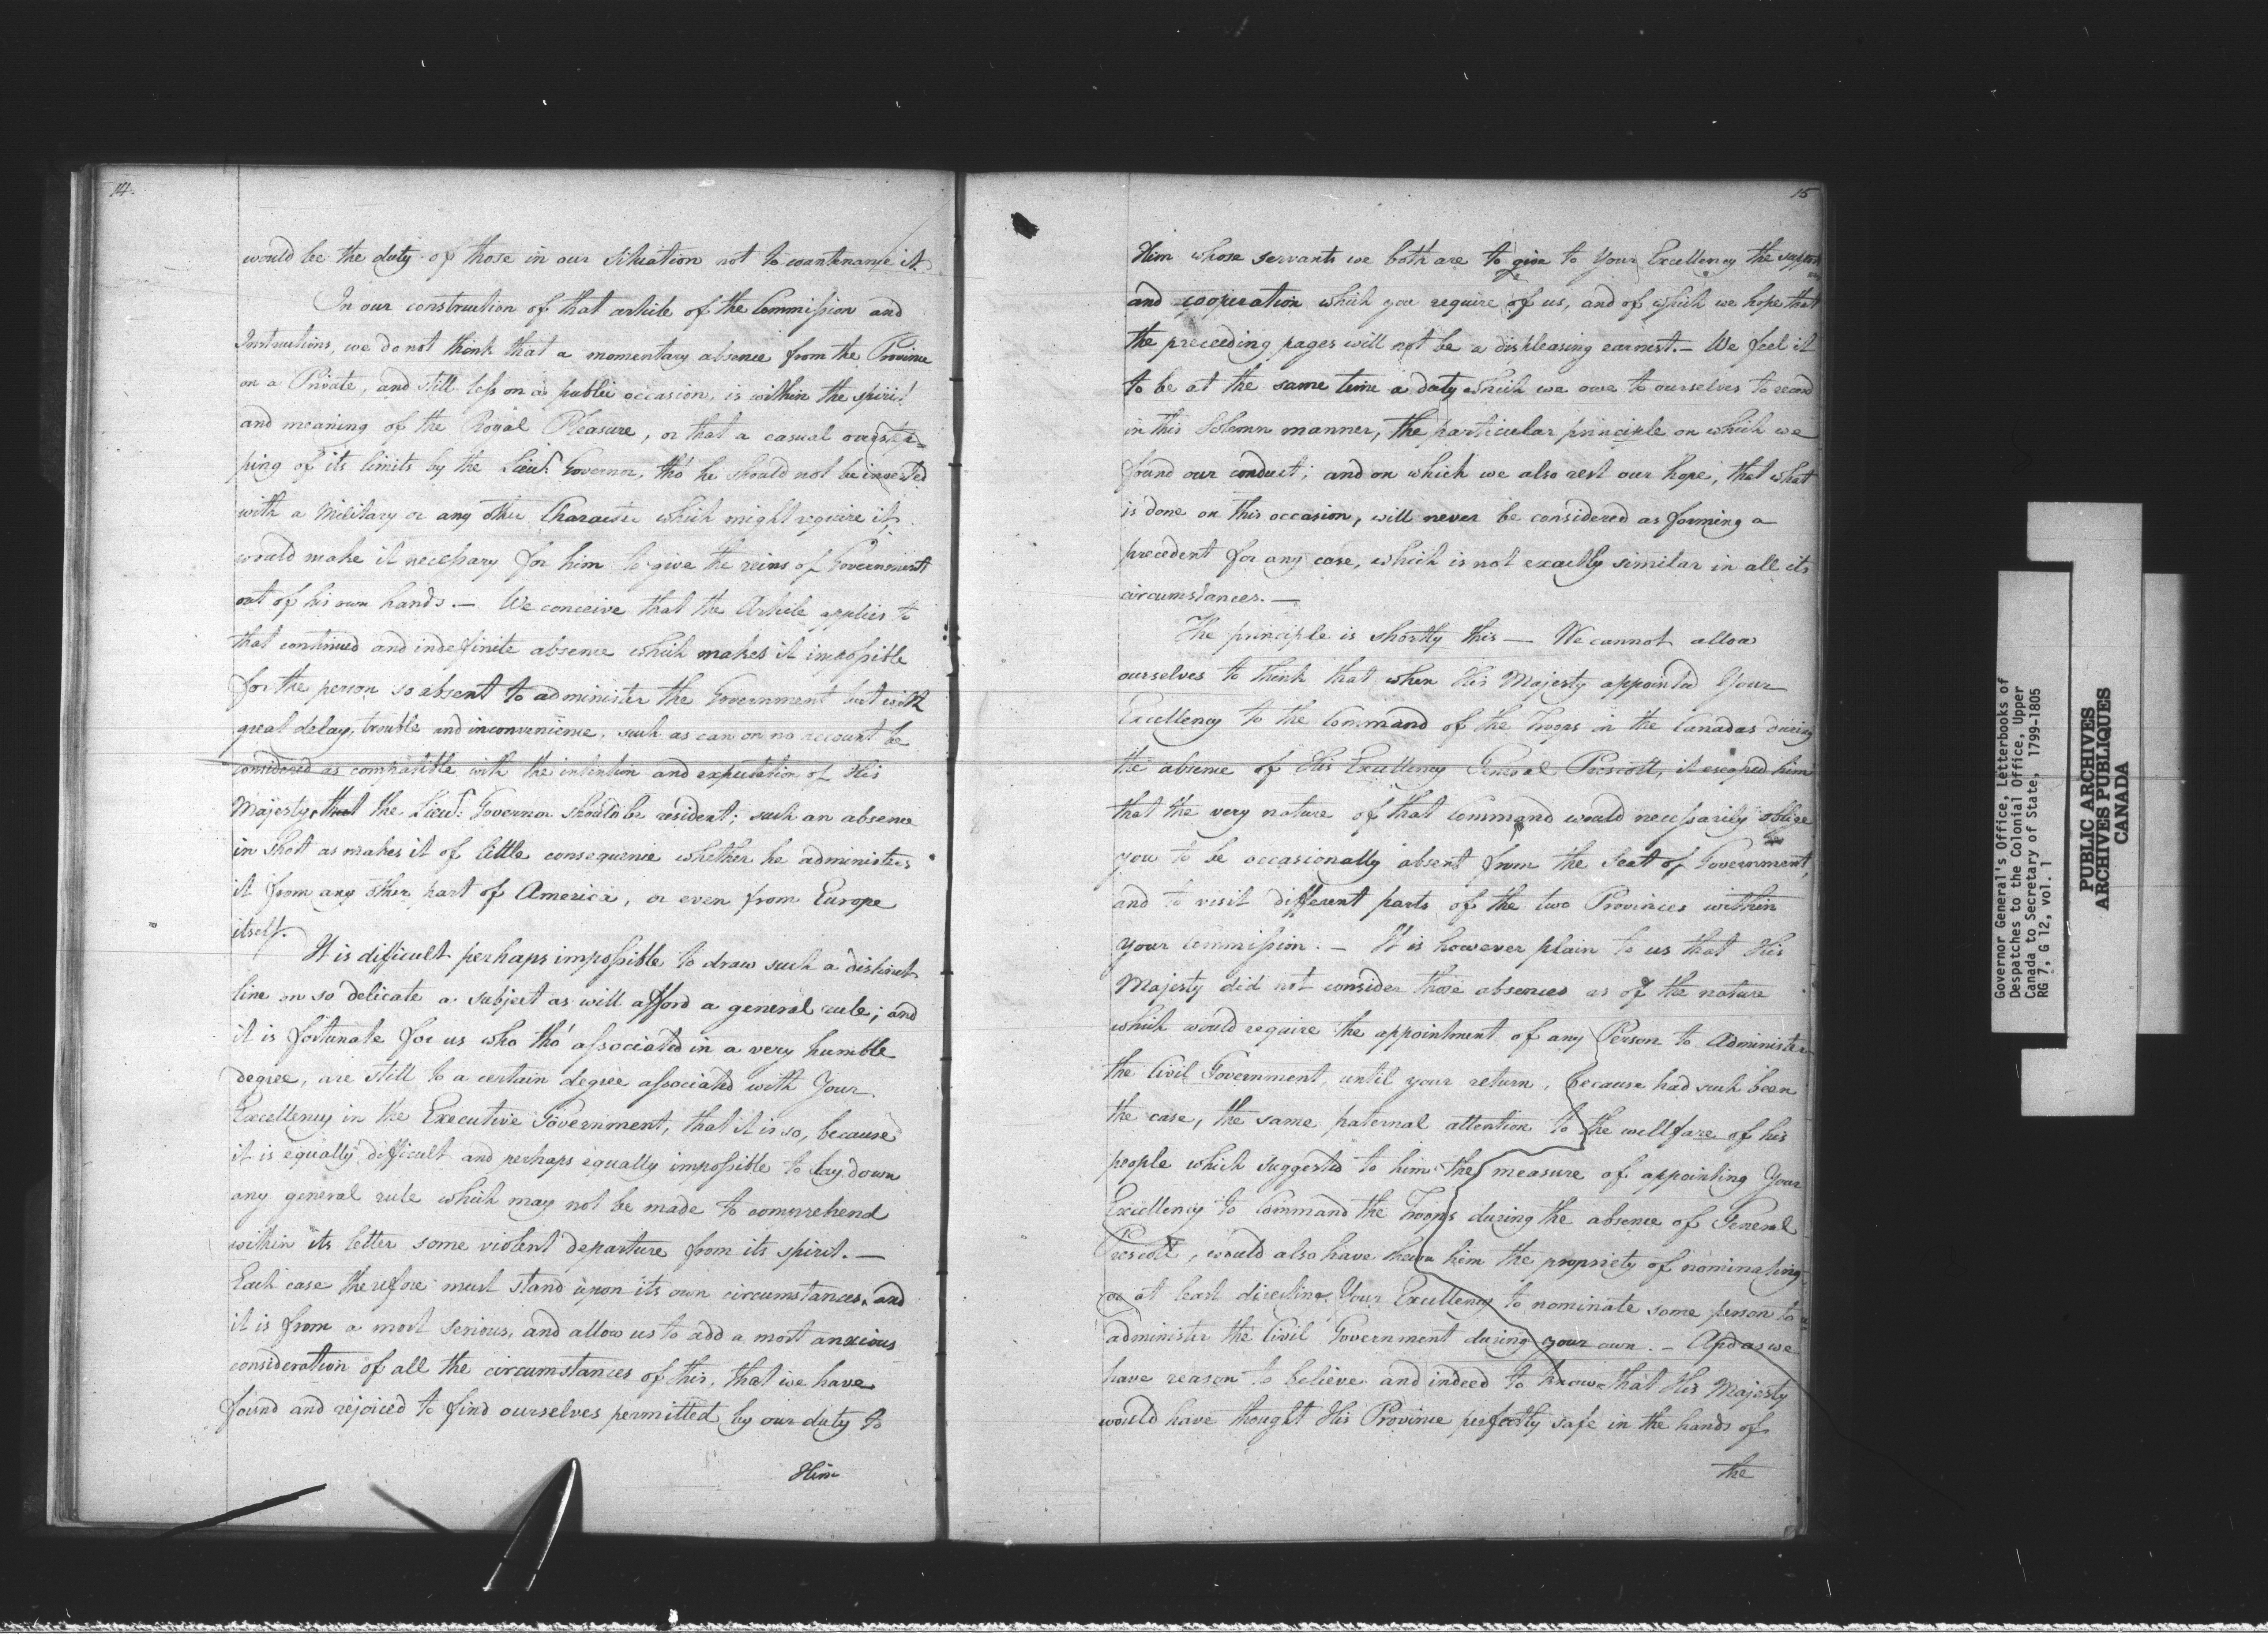 14.
would be the duty of those in our situation not to countenance it.
In our construction of that article of the Commission and
Instructions, we do not think that a momentary absence from the Province
on a Private, and still less on a public occasion, is within the spirit
and meaning of the Royal Pleasure, or that a casual overstep=
ping of its limits by the Lieut. Governor, tho' he should not be invested
with a Military or any other Character which might require it,
would make it necessary for him to give the reins of Government
out of his own hands. — We conceive that the Article applies to
that continued and indefinite absence which makes it impossible
for the person so absent to administer the Government but with
great delay, trouble and inconvenience, such as can on no account be
considered as compatible with the intention and expectation of His
Majesty, that the Lieut. Governor should be resident; such an absence
in short as makes it of little consequence whether he administers
it from any other part of America, or even from Europe
itself.
It is difficult perhaps impossible to draw such a distinct
line on so delicate a subject as will afford a general rule; and
it is fortunate for us who tho' associated in a very humble
degree, are still to a certain degree associated with Your
Excellency in the Executive Government, that it is so, because
it is equally difficult and perhaps equally impossible to lay down
any general rule which may not be made to comprehend
within its letter some violent departure from its spirit. —
Each case therefore must stand upon its own circumstances, and
it is from a most serious, and allow us to add a most anxious
consideration of all the circumstances of this, that we have
found and rejoiced to find ourselves permitted by our duty to
Him
15
Him whose servants we both are to give to Your Excellency the support
and cooperation which you require of us, and of which we hope that
the preceeding pages will not be a displeasing earnest. — We feel it
to be at the same time a duty which we owe to ourselves to record
in this Solemn manner, the particular principle on which we
found our conduct; and on which we also rest our hope, that what
is done on this occasion, will never be considered as forming a
precedent for any case, which is not exactly similar in all its
circumstances. —
The principle is shortly this — We cannot allow
ourselves to think that when His Majesty appointed Your
Excellency to the Command of the Troops in the Canadas during
the absence of His Excellency General Prescott, it escaped him
that the very nature of that Command would necessarily oblige
you to be occasionally absent from the Seat of Government,
and to visit different parts of the two Provinces within
your Commission. — It is however plain to us that His
Majesty did not consider those absences as of the nature
which would require the appointment of any Person to Administer
the Civil Government, until your return, because had such been
the case, the same paternal attention to the wellfare of his
people which suggested to him the measure of appointing Your
Excellency to Command the Troops during the absence of General
Prescott, would also have shewn him the propriety of nominating
or at least directing Your Excellency to nominate some person to
administer the Civil Government during your own. — And as we
have reason to believe and indeed to know that His Majesty
would have thought His Province perfectly safe in the hands of
the
Governor General's Office, Letterbooks of
Despatches to the Colonial Office, Upper
Canada to Secretary of State, 1799-1805
RG 7, G 12, vol. 1
PUBLIC ARCHIVES
ARCHIVES PUBLIQUES
CANADA